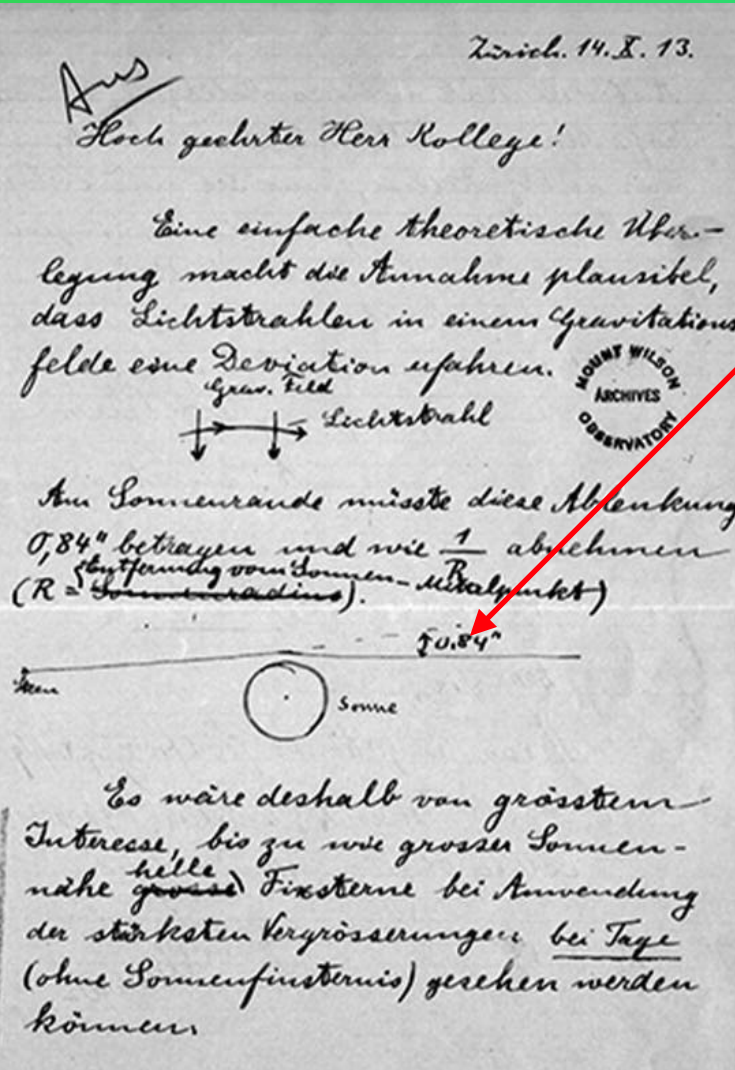 Zürich. 14. X. 13.
Aus
Hoch geehrter Herr Kollege!
Eine einfache theoretische Über-
legung macht die Annahme plausibel,
dass Lichtstrahlen in einem Gravitations
felde eine Deviation erfahren.
MOUNT WILSON
ARCHIVES
OBSERVATORY
Grav. Feld
Lichtstrahl
Am Sonnenrande müsste diese Ablenkung
0,84" betragen und wie 1/R abnehmen
Entfernung vom Sonnen-Mittelpunkt)
(R = Sonnenradius).
0.84"
Stern
Sonne
Es wäre deshalb von grösstem
Interesse, bis zu wie grosser Sonnen-
helle
nähe grosse Fixsterne bei Anwendung
der stärksten Vergrösserungen bei Tage
(ohne Sonnenfinsternis) gesehen werden
können.